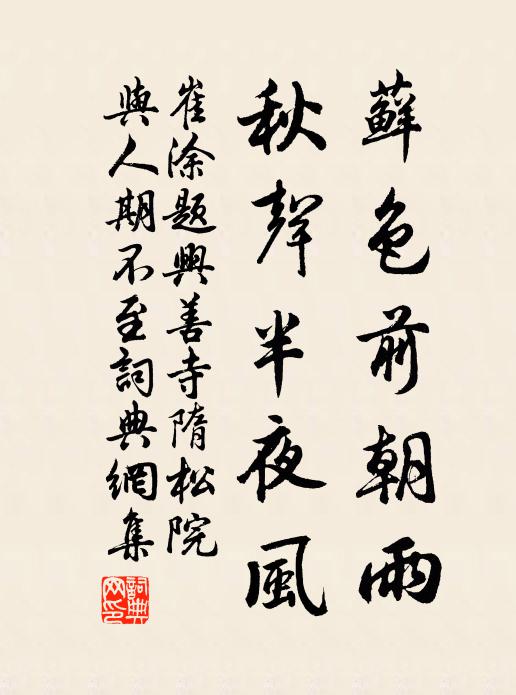 蘚色前朝雨
秋聲半夜風
崔涂題興善寺隋松院
與人期不至詞典網集
詞典
网印